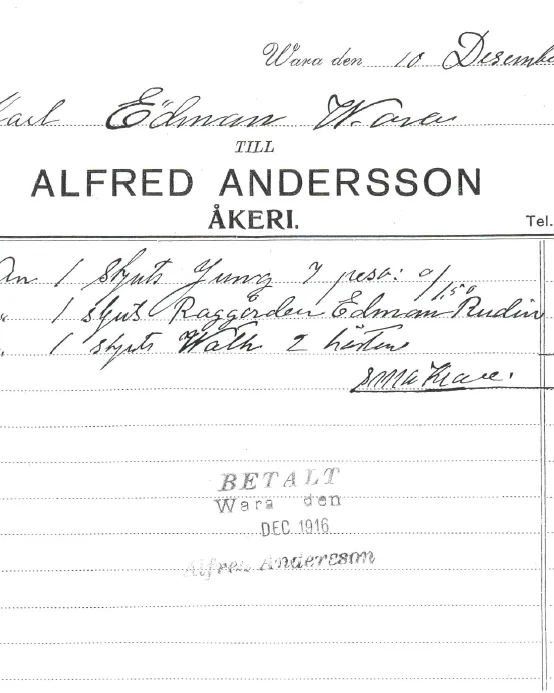 Wara den 10 Desembe
Karl Edman Wara
TILL
ALFRED ANDERSSON
ÅKERI.
Tel.
An 1 skjuts Jung 7 pers: a/1,50
" 1 skjuts Raggården Edman Rudin
" 1 skjuts Wath 2 hästar
Kronor.
BETALT
Wara den
DEC 1916
Alfred Andersson